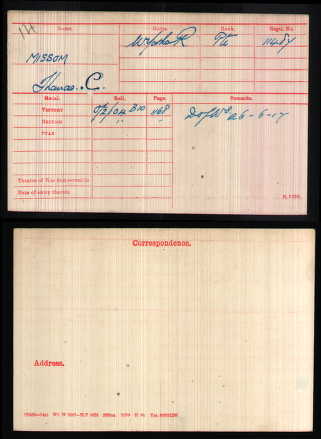 Name. Corps. Rank. Regtl. No.
MISSOM W York R Pte 11487
Thomas. C.
Medal. Roll. Page. Remarks.
VICTORY O/2/104 B10 1168 D of W 26-6-17
BRITISH " "
STAR
Theatre of War first served in
Date of entry therein
K. 1380.
Correspondence.
Address.